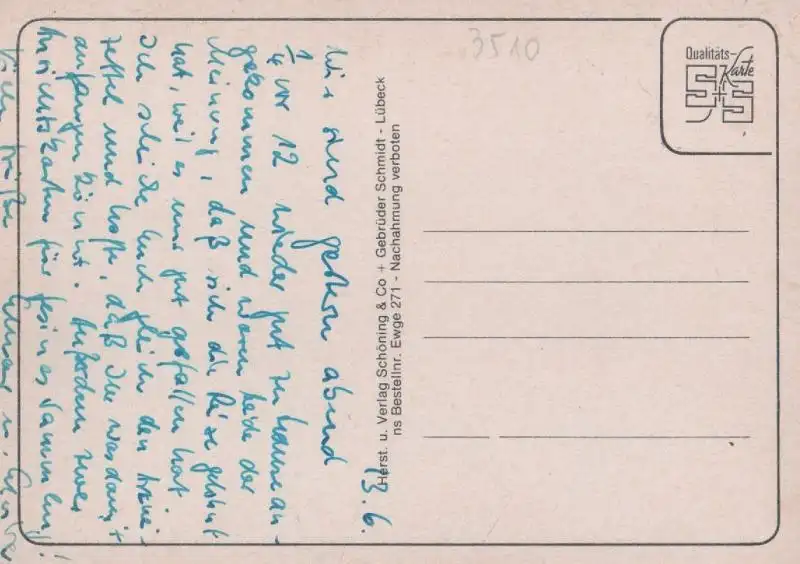 13.6.
Wir sind gestern abend
1/4 vor 12 wieder gut zu Hause an-
gekommen und waren beide der
Meinung, daß sich die Reise gelohnt
hat, weil es uns gut gefallen hat
Ich schicke Euch gleich den
zettel und hoffe, daß Ihr was damit
anfangen könnt. Außerdem zwei
Ansichtskarten für
Viele Grüße
3510
Qualitäts-
Karte
S+S
Herst. u. Verlag Schöning & Co + Gebrüder Schmidt - Lübeck
ns Bestellnr. Ewge 271 - Nachahmung verboten